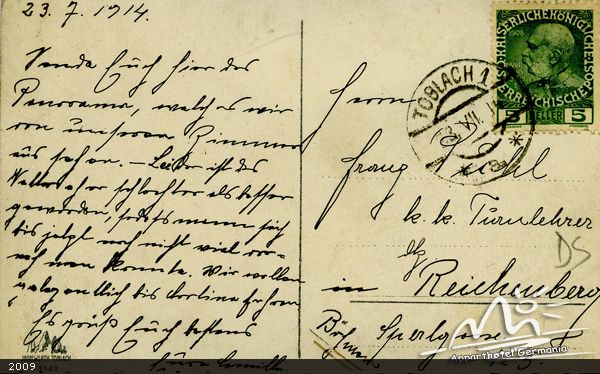 23. 7. 1914.
Sende Euch hier das
Panorama, welches wir
von unseren Zimmer
aus sehen. – Leider ist das
Wetter eher schlechter als besser
geworden, so daß man sich
bis jetzt noch nicht viel vor-
nehmen konnte. Wir wollen
gelegentlich bis Cortina fahren
Es grüßt Euch bestens
Herrn
Franz
k. k. Turnlehrer
in Reichenberg
Böhmen
Sperlgasse
DS
1908
TOBLACH 1
VII
5 HELLER 5
Apparthotel Germania
2009